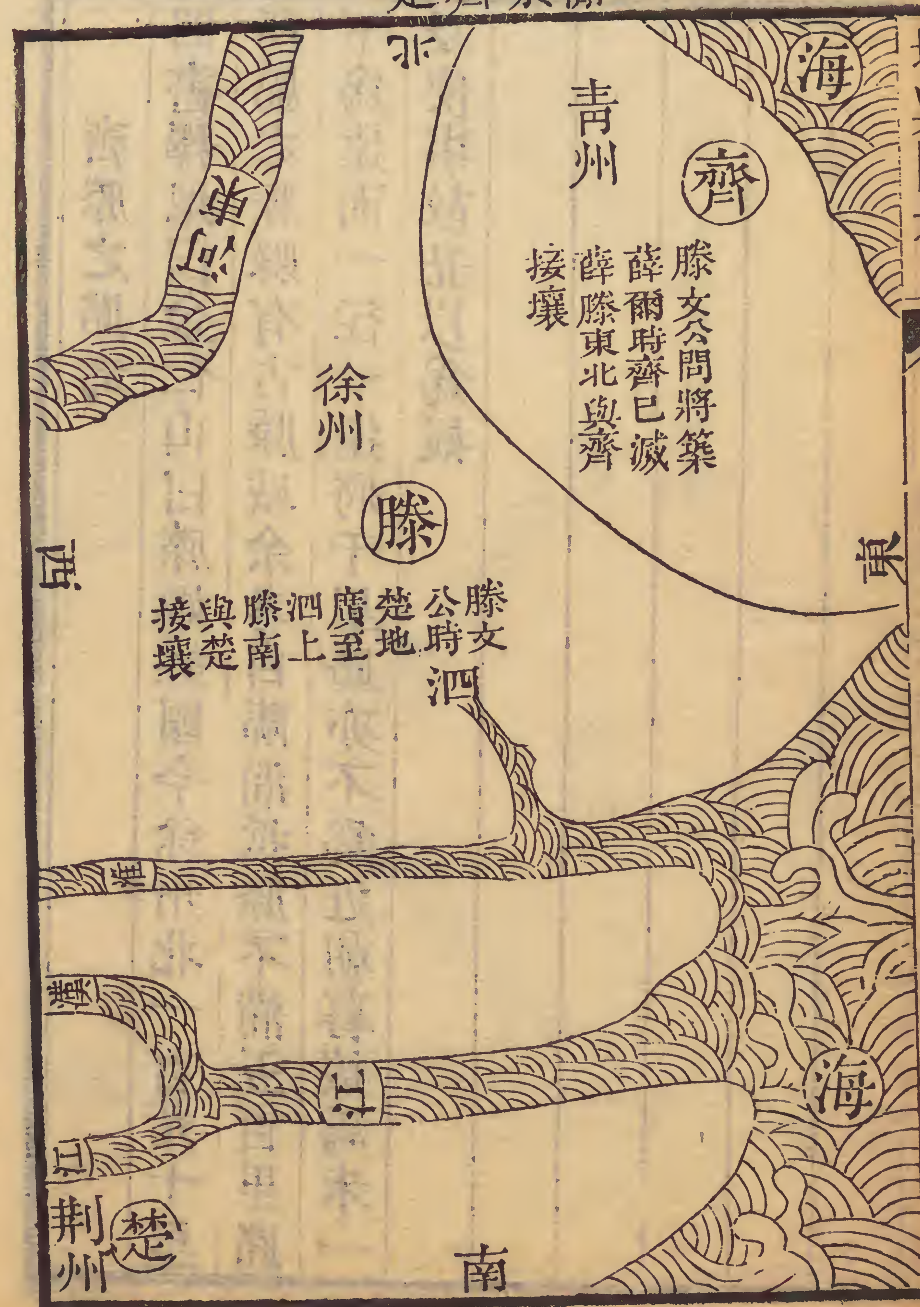 北
海
青州
齊
滕文公問將築
薛爾時齊已滅
薛滕東北與齊
接壤
東河
徐州
滕
東
西
滕文
公時
楚地
廣至
泗上
滕南
與楚
接壤
泗
淮
漢
江
江
海
荆州
楚
南